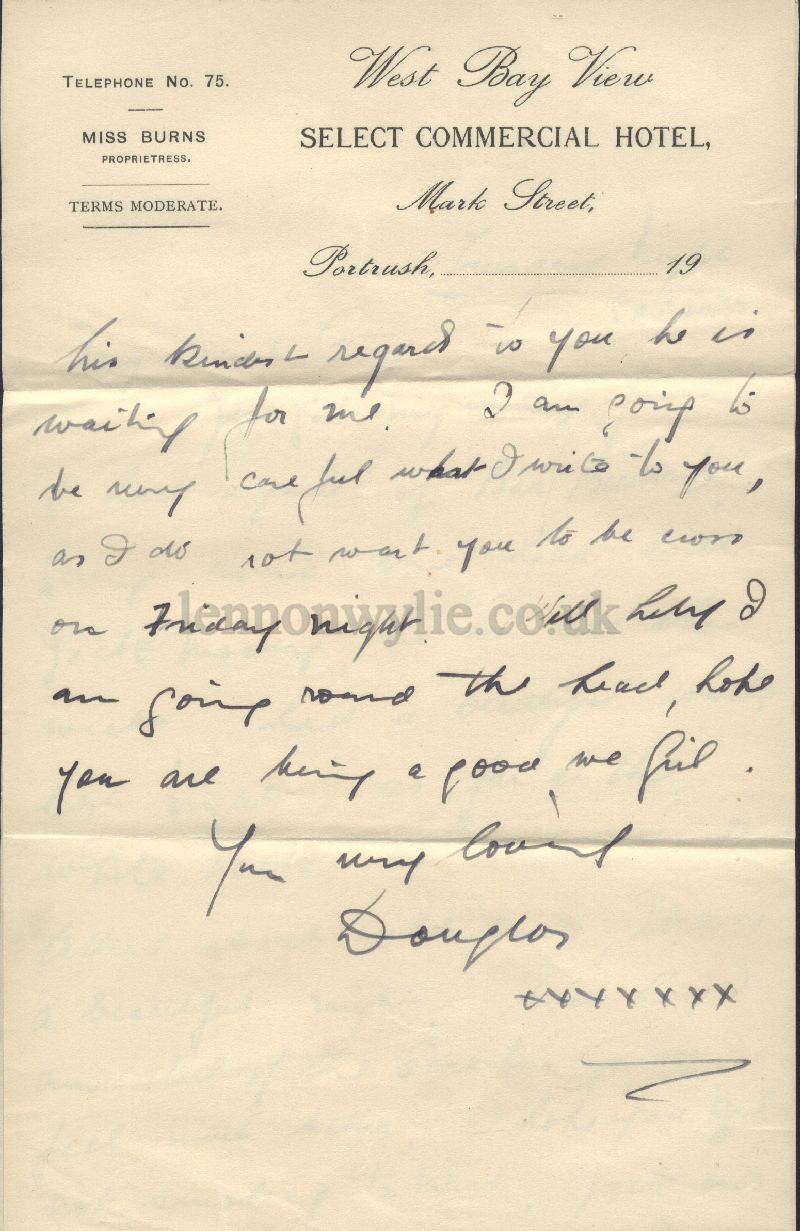 TELEPHONE NO. 75.
MISS BURNS
PROPRIETRESS.
TERMS MODERATE.
West Bay View
SELECT COMMERCIAL HOTEL,
Mark Street,
Portrush, 19
his kindest regards to you he is
waiting for me. I am going to
be very careful what I write to you,
as I do not want you to be cross
on Friday night. Well I
am going round the head, hope
you are being a good wee girl.
Your very loving
Douglas
xxxxxxxx
lennonwylie.co.uk